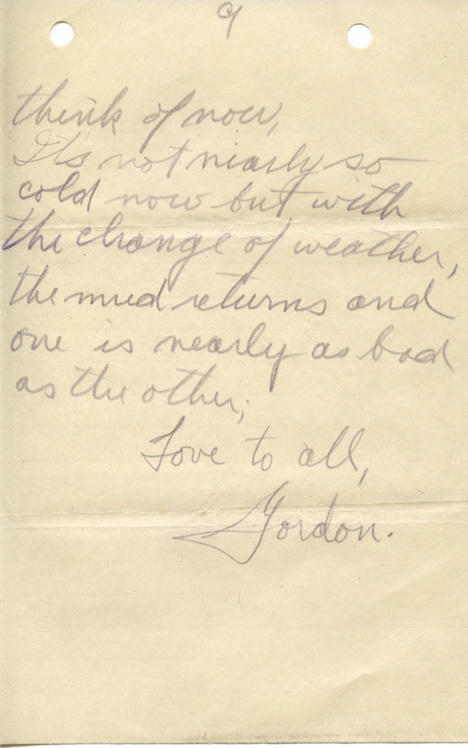 9
think of now,
It's not nearly so
cold now but with
the change of weather,
the mud returns and
one is nearly as bad
as the other,
Love to all,
Gordon.